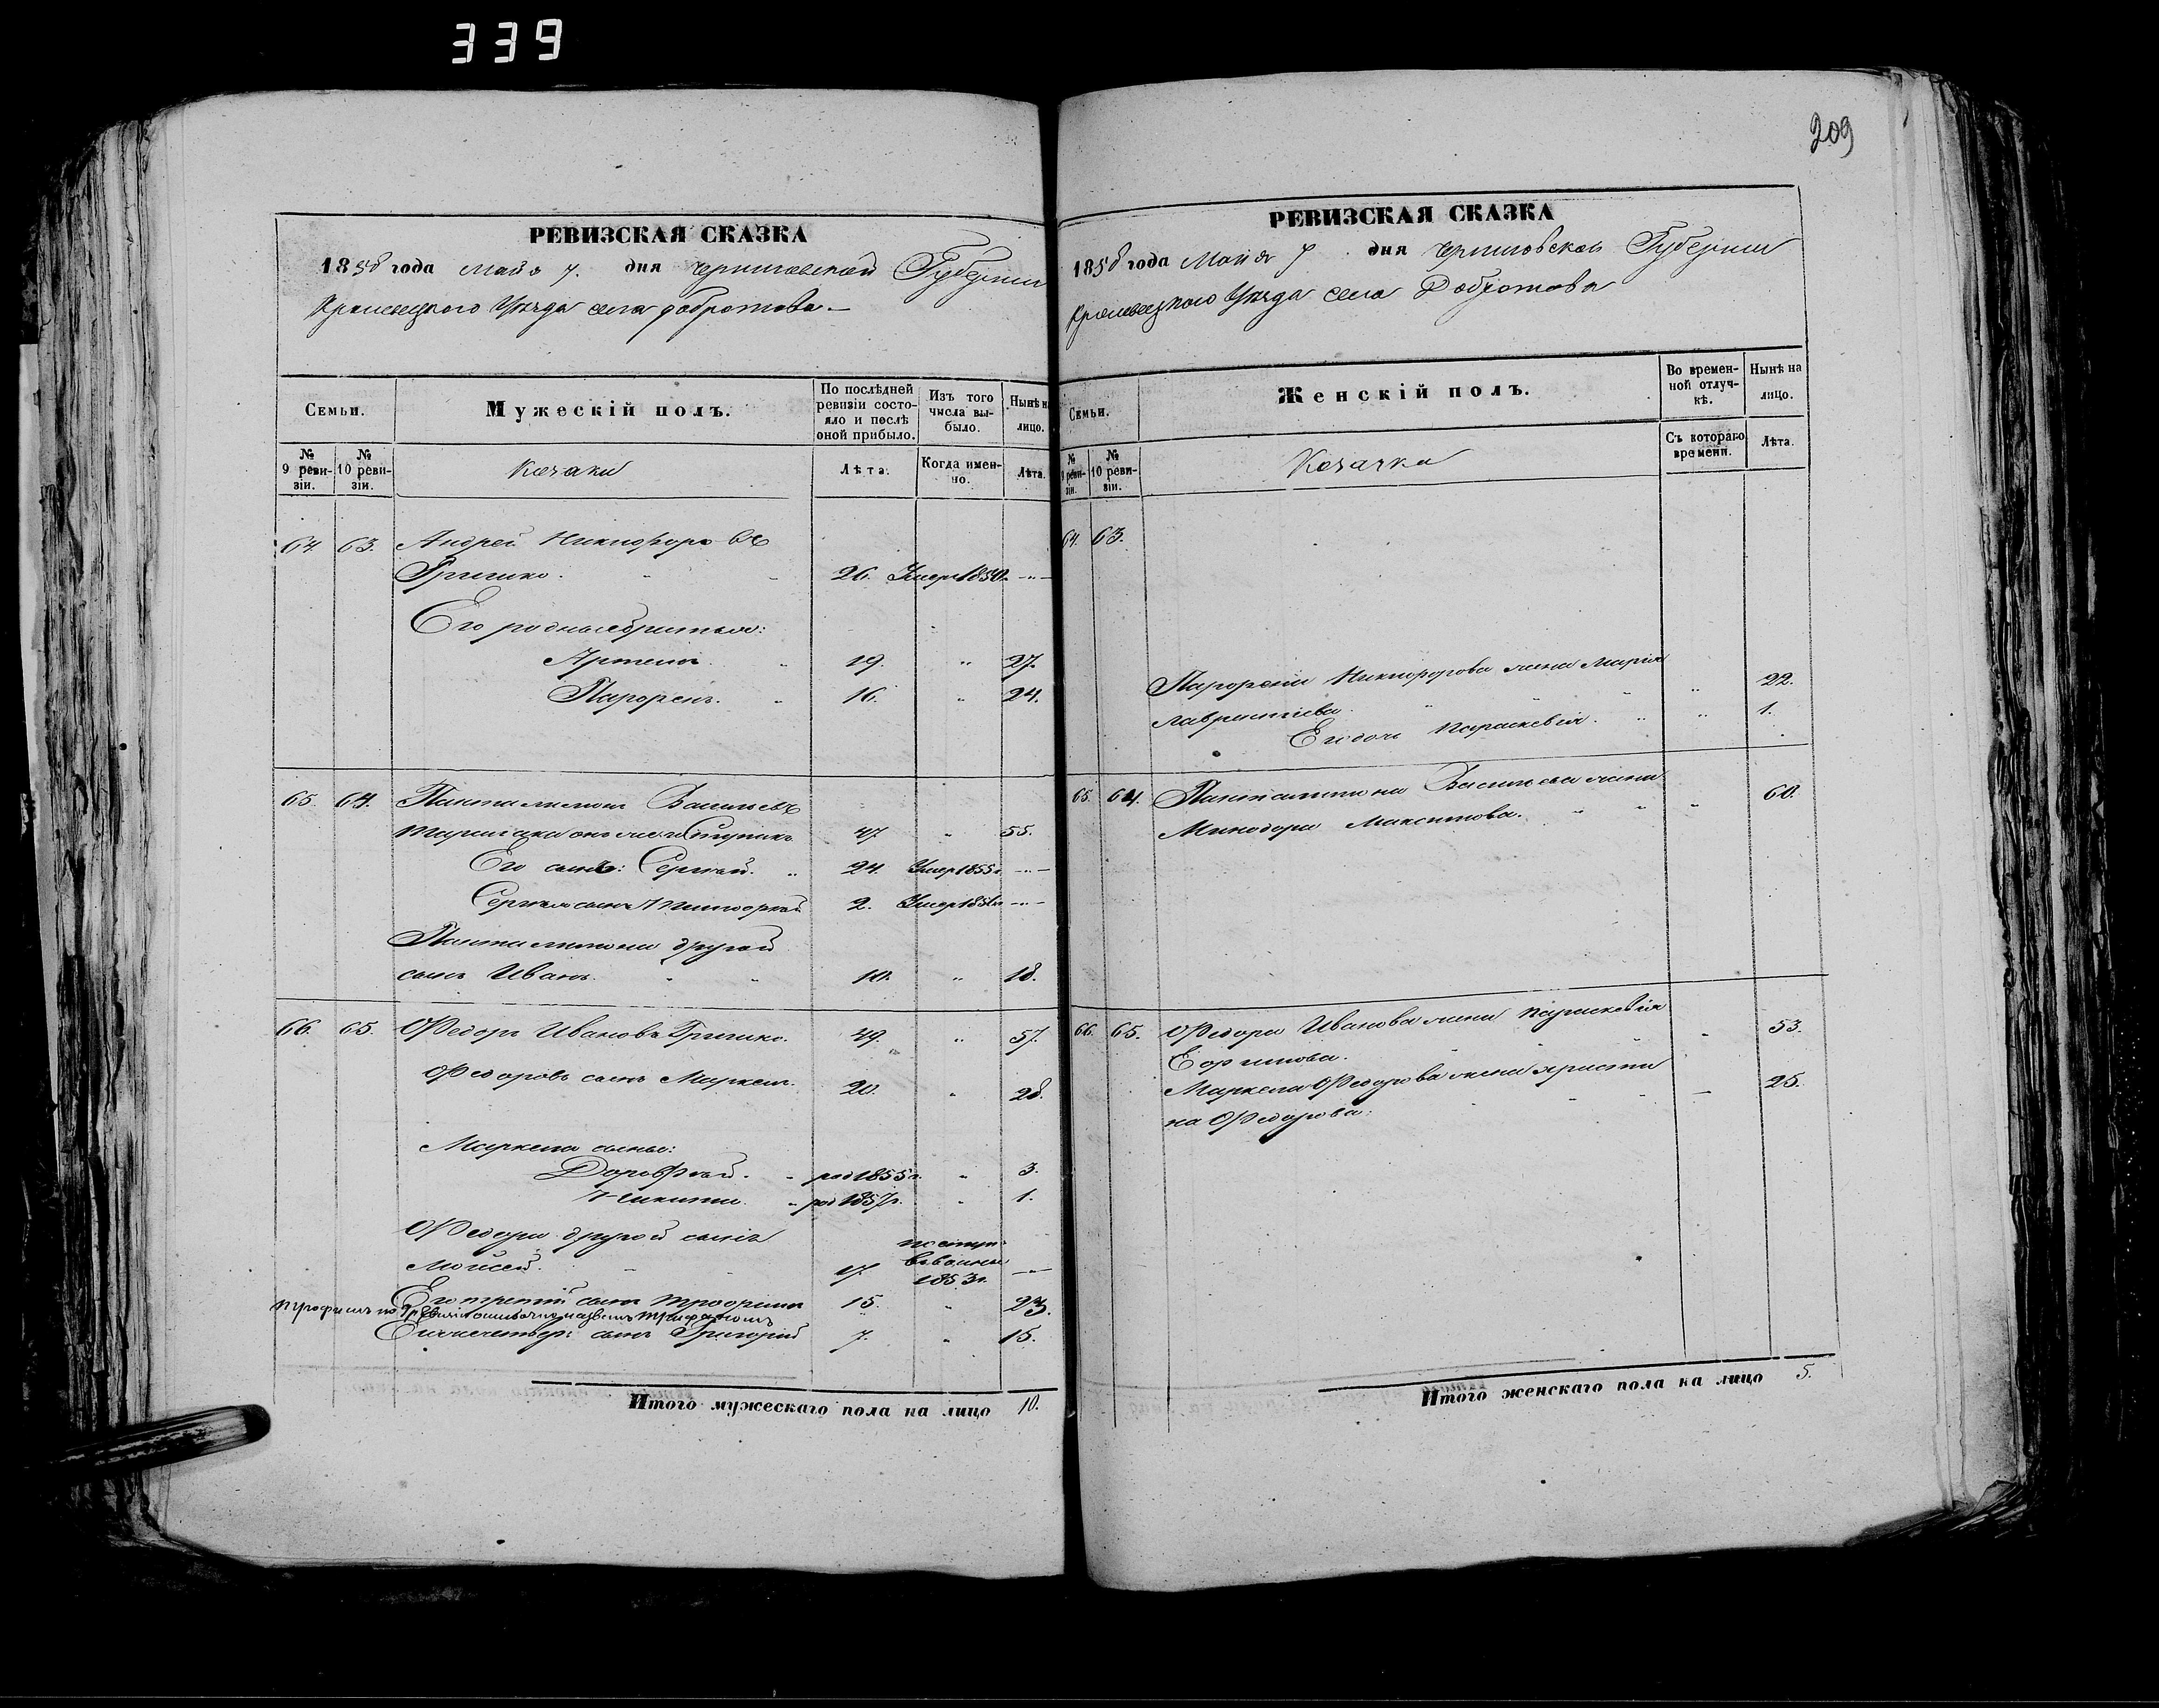 339
209
РЕВИЗСКАЯ СКАЗКА
1858 года Мая 7. дня Черниговской Губернии
Кролевецкого Уѣзда села Добротова
Семьи.
Мужескій полъ.
По послѣдней ревизіи состояло и послѣ оной прибыло.
Изъ того числа выбыло.
Нынѣ на лицо.
№ 9 ревизіи.
№ 10 ревизіи.
Козаки
Лѣта.
Когда именно.
Лѣта.
64. 63. Андрей Никифоровъ
Гришко. 26. Умер 1850
Его родные братья:
Артемъ 19. " 27.
Парфенъ. 16. " 24.
65. 64. Пантилимонъ Васильевъ
47. " 55.
Его сынъ: Сергѣй. 24. Умер 1855 г.
Сергѣя сынъ 2. Умер
Пантилимона другой
сынъ Иванъ. 10. " 18.
66. 65. Федоръ Ивановъ Гришко. 49. " 57.
Федоровъ сынъ Маркелъ. 20. " 28.
Маркела сыны:
Дорофѣй. род 1855 г. " 3.
Никита. род 1857 г. " 1.
Федора другой сынъ
Мойсей. 17. поступ. 1853 г.
Его третій сынъ Трофимъ 15. " 23.
Трофимъ по 9 ревизіи ошибочно названъ Трифономъ
сынъ Григорій 7. " 15.
Итого мужескаго пола на лицо 10.
РЕВИЗСКАЯ СКАЗКА
1858 года Мая 7 дня Черниговской Губернии
Кролевецкого Уѣзда села Добротова
Семьи.
Женскій полъ.
Во временной отлучкѣ.
Нынѣ на лицо.
№ 9 ревизіи.
№ 10 ревизіи.
Козачки
Съ котораго времени.
Лѣта.
64. 63.
Парфена Никифорова жена Марія
Лаврентіева. " 22.
Его дочь Параскевія. " 1.
65. 64. Пантилимона Васильева жена
Минодора Максимова. " 60.
66. 65. Федора Иванова жена Параскевія
Ефимова. 53.
Маркела Федорова жена Христи
на Федорова. 25.
Итого женскаго пола на лицо 5.